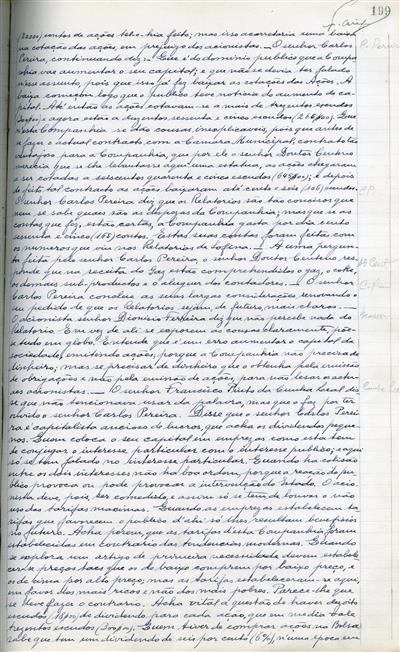 199
pessoentos de acções tel-o-hia feito; mas isso acarretaria uma baixa
na cotação das acções, em prejuizo dos acionistas. — O senhor Carlos
Pereira, continuando diz: — Que é do dominio publico que a Compa-
nhia vae aumentar o seu capital; e que não se devia ter falado
n'esse assunto, pois que isso já fez baixar as cotações das Acções. A
baixa começou logo que o publico teve noticia do aumento de ca-
pital. Até então as acções cotavam-se a mais de trezentos escudos
e agora estão a duzentos sessenta e cinco escudos
n'esta Companhia se dão cousas inexplicaveis, pois que antes de
se fazer o actual contracto com a Camara Municipal, contracto tão
vantajoso para a Companhia, que por ele o senhor Doutor Centeno
merecia que se lhe levantasse aqui uma estatua, as acções chegaram
a ser cotadas a seiscentos quarenta e cinco escudos e depois
de feito tal contracto as acções baixaram até cento e seis (106) escudos.
O senhor Carlos Pereira diz que os Relatorios são tão concisos que
nem se sabe quaes são as despezas da Companhia; mas que se as
contas que fez, estão certas, a Companhia gasta por dia cento
sessenta e cinco contos. Estas suas contas foram feitas com
os numeros que viu nos Relatorios da Sofina. — A uma pergun-
ta feita pelo senhor Carlos Pereira, o senhor Doutor Centeno res-
ponde que na receita do Gaz estão comprehendidos o gaz, o coke,
os demais sub-productos e o aluguer dos contadores. — O senhor
Carlos Pereira conclue as suas largas considerações renovando o
seu pedido de que os Relatorios sejam, de futuro, mais claros. —
O acionista senhor Dionisio Ferreira diz que não percebe nada do
Relatorio. Em vez de ali se exporem as cousas claramente, põe-
se tudo em globo. Entende que é um erro aumentar o capital da
sociedade, emitindo acções, porque a Companhia não precisa de
dinheiro; mas se precisar de dinheiro que o obtenha pela emissão
de obrigações e não pela emissão de acções, para não lesar os actu-
aes acionistas. — O senhor Francisco Pinto da Cunha Leal diz
que não tencionava usar da palavra, mas que o faz por ter
ouvido o senhor Carlos Pereira. Disse que o senhor Carlos Perei-
ra é capitalista ancioso de lucros, que acha os dividendos peque-
nos. Quem coloca o seu capital em emprezas como esta tem
de conjugar o interesse particular com o interesse publico; e aqui
só se tem falado no interesse particular. Quando ha colisão
entre os dois interesses, não ha boa ordem, porque a reacção do pu-
blico provoca ou pode provocar a intervenção do Estado. O acio-
nista deve, pois, ser comedido, e assim só se tem de louvar o não
uso das tarifas maximas. Quando as emprezas estabelecem ta-
rifas que favorecem o publico d'ahi só lhes resultam beneficios
no futuro. Acha porem, que as tarifas desta Companhia foram
estabelecidas em contrario das tendencias modernas. Quando
se explora um artigo de primeira necessidade devem estabele-
cer-se preços taes que os de baixo comprem por baixo preço, e
os de cima por alto preço; mas as tarifas estabeleceram-se aqui,
em favor dos mais ricos e não dos mais pobres. Parece-lhe que
se deve fazer o contrario. Acha vital a questão de haver dezoito
escudos de dividendo para cada acção, que em media vale
trezentos escudos. Quem tiver de comprar acções na Bolsa
sabe que tem um dividendo de seis por cento (6%), n'uma epoca em